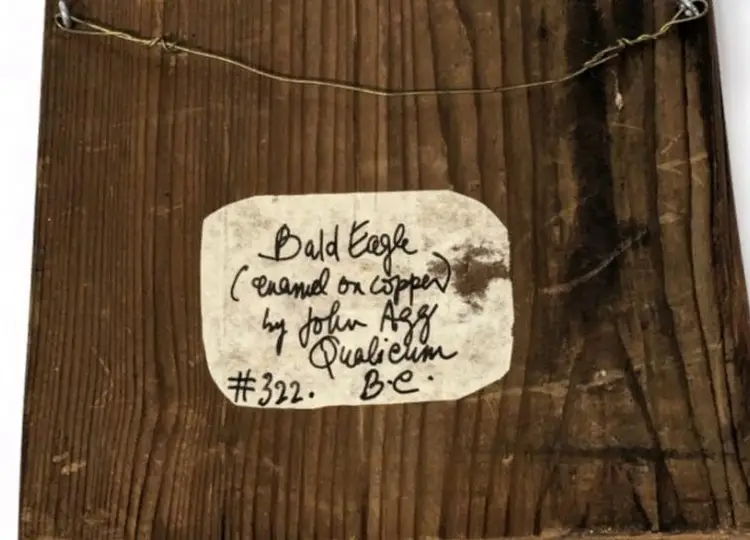 Bald Eagle
(enamel on copper)
by John Agg
Qualicum
#322. B.C.